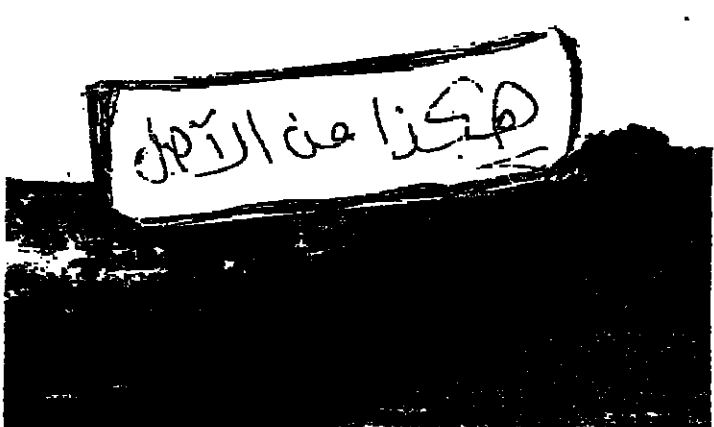 هكذا من الأصل